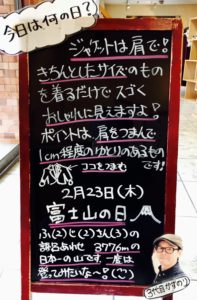 今日は何の日?
ジャケットは肩で!
きちんとしたサイズのもの
を着るだけでスゴく
おしゃれに見えますよ!
ポイントは、肩をつまんで
1cm程度のゆとりのあるもの
です!
ココをつまむ
2月23日(木)
富士山の日
ふ(2)じ(2)さん(3)の
語呂あわせ 3776mの
日本一の山です。一度は
登ってみたいな〜!
3代目かずのり